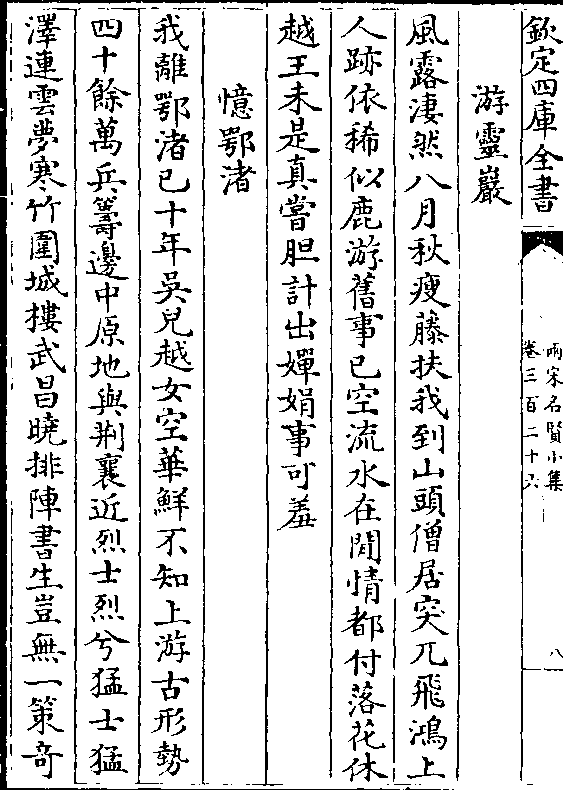 欽定四庫全書
兩宋名賢小集
卷三百二十六
八
游靈巖
風露淒然八月秋瘦藤扶我到山頭僧居突兀飛鴻上
人跡依稀似鹿游舊事已空流水在閒情都付落花休
越王未是真嘗胆計出嬋娟事可羞
憶鄂渚
我離鄂渚已十年吳兒越女空華鮮不知上游古形勢
四十餘萬兵籌邊中原地與荆襄近烈士烈兮猛士猛
澤連雲夢寒竹圍城樓武昌曉排陣書生豈無一策奇